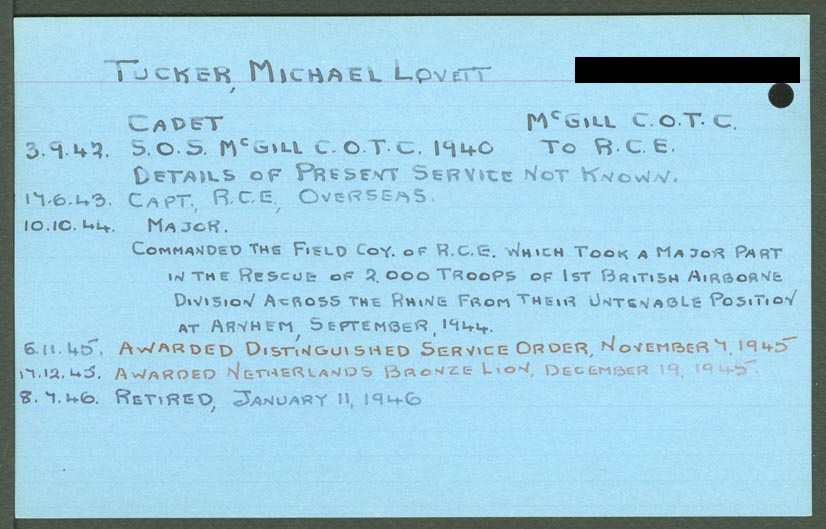 TUCKER, MICHAEL LOVETT
CADET McGILL C.O.T.C.
3.9.42. S.O.S. McGILL C.O.T.C. 1940 TO R.C.E.
DETAILS OF PRESENT SERVICE NOT KNOWN.
17.6.43. CAPT., R.C.E., OVERSEAS.
10.10.44. MAJOR.
COMMANDED THE FIELD COY. OF R.C.E. WHICH TOOK A MAJOR PART
IN THE RESCUE OF 2,000 TROOPS OF 1ST BRITISH AIRBORNE
DIVISION ACROSS THE RHINE FROM THEIR UNTENABLE POSITION
AT ARNHEM, SEPTEMBER, 1944.
6.11.45. AWARDED DISTINGUISHED SERVICE ORDER, NOVEMBER 7, 1945
17.12.45. AWARDED NETHERLANDS BRONZE LION, DECEMBER 19, 1945.
8.7.46. RETIRED, JANUARY 11, 1946